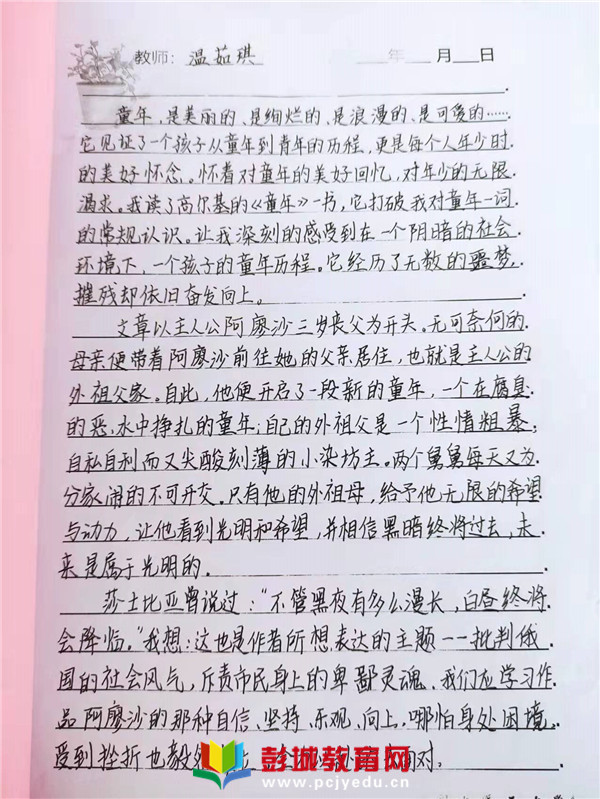 教师：温茹琪 年 月 日
童年，是美丽的、是绚烂的、是浪漫的、是可爱的……
它见证了一个孩子从童年到青年的历程，更是每个人年少时
的美好怀念。怀着对童年的美好回忆，对年少的无限
渴求。我读了高尔基的《童年》一书，它打破我对童年一词
的常规认识。让我深刻的感受到在一个阴暗的社会
环境下，一个孩子的童年历程。它经历了无数的噩梦，
摧残却依旧奋发向上。
文章以主人公阿廖沙三岁丧父为开头。无可奈何的
母亲便带着阿廖沙前往她的父亲居住，也就是主人公的
外祖父家。自此，他便开启了一段新的童年，一个在腐臭
的恶水中挣扎的童年；自己的外祖父是一个性情粗暴，
自私自利而又尖酸刻薄的小染坊主。两个舅舅每天又为
分家闹的不可开交。只有他的外祖母，给予他无限的希望
与动力，让他看到光明和希望，并相信黑暗终将过去，未
来是属于光明的。
莎士比亚曾说过：“不管黑夜有多么漫长，白昼终将
会降临。”我想：这也是作者所想表达的主题——批判俄
国的社会风气，斥责市民身上的卑鄙灵魂。我们应学习作
品阿廖沙的那种自信、坚持、乐观、向上，哪怕身处困境，
受到挫折也毅 面对。
彭城教育网
www.pcjyedu.cn